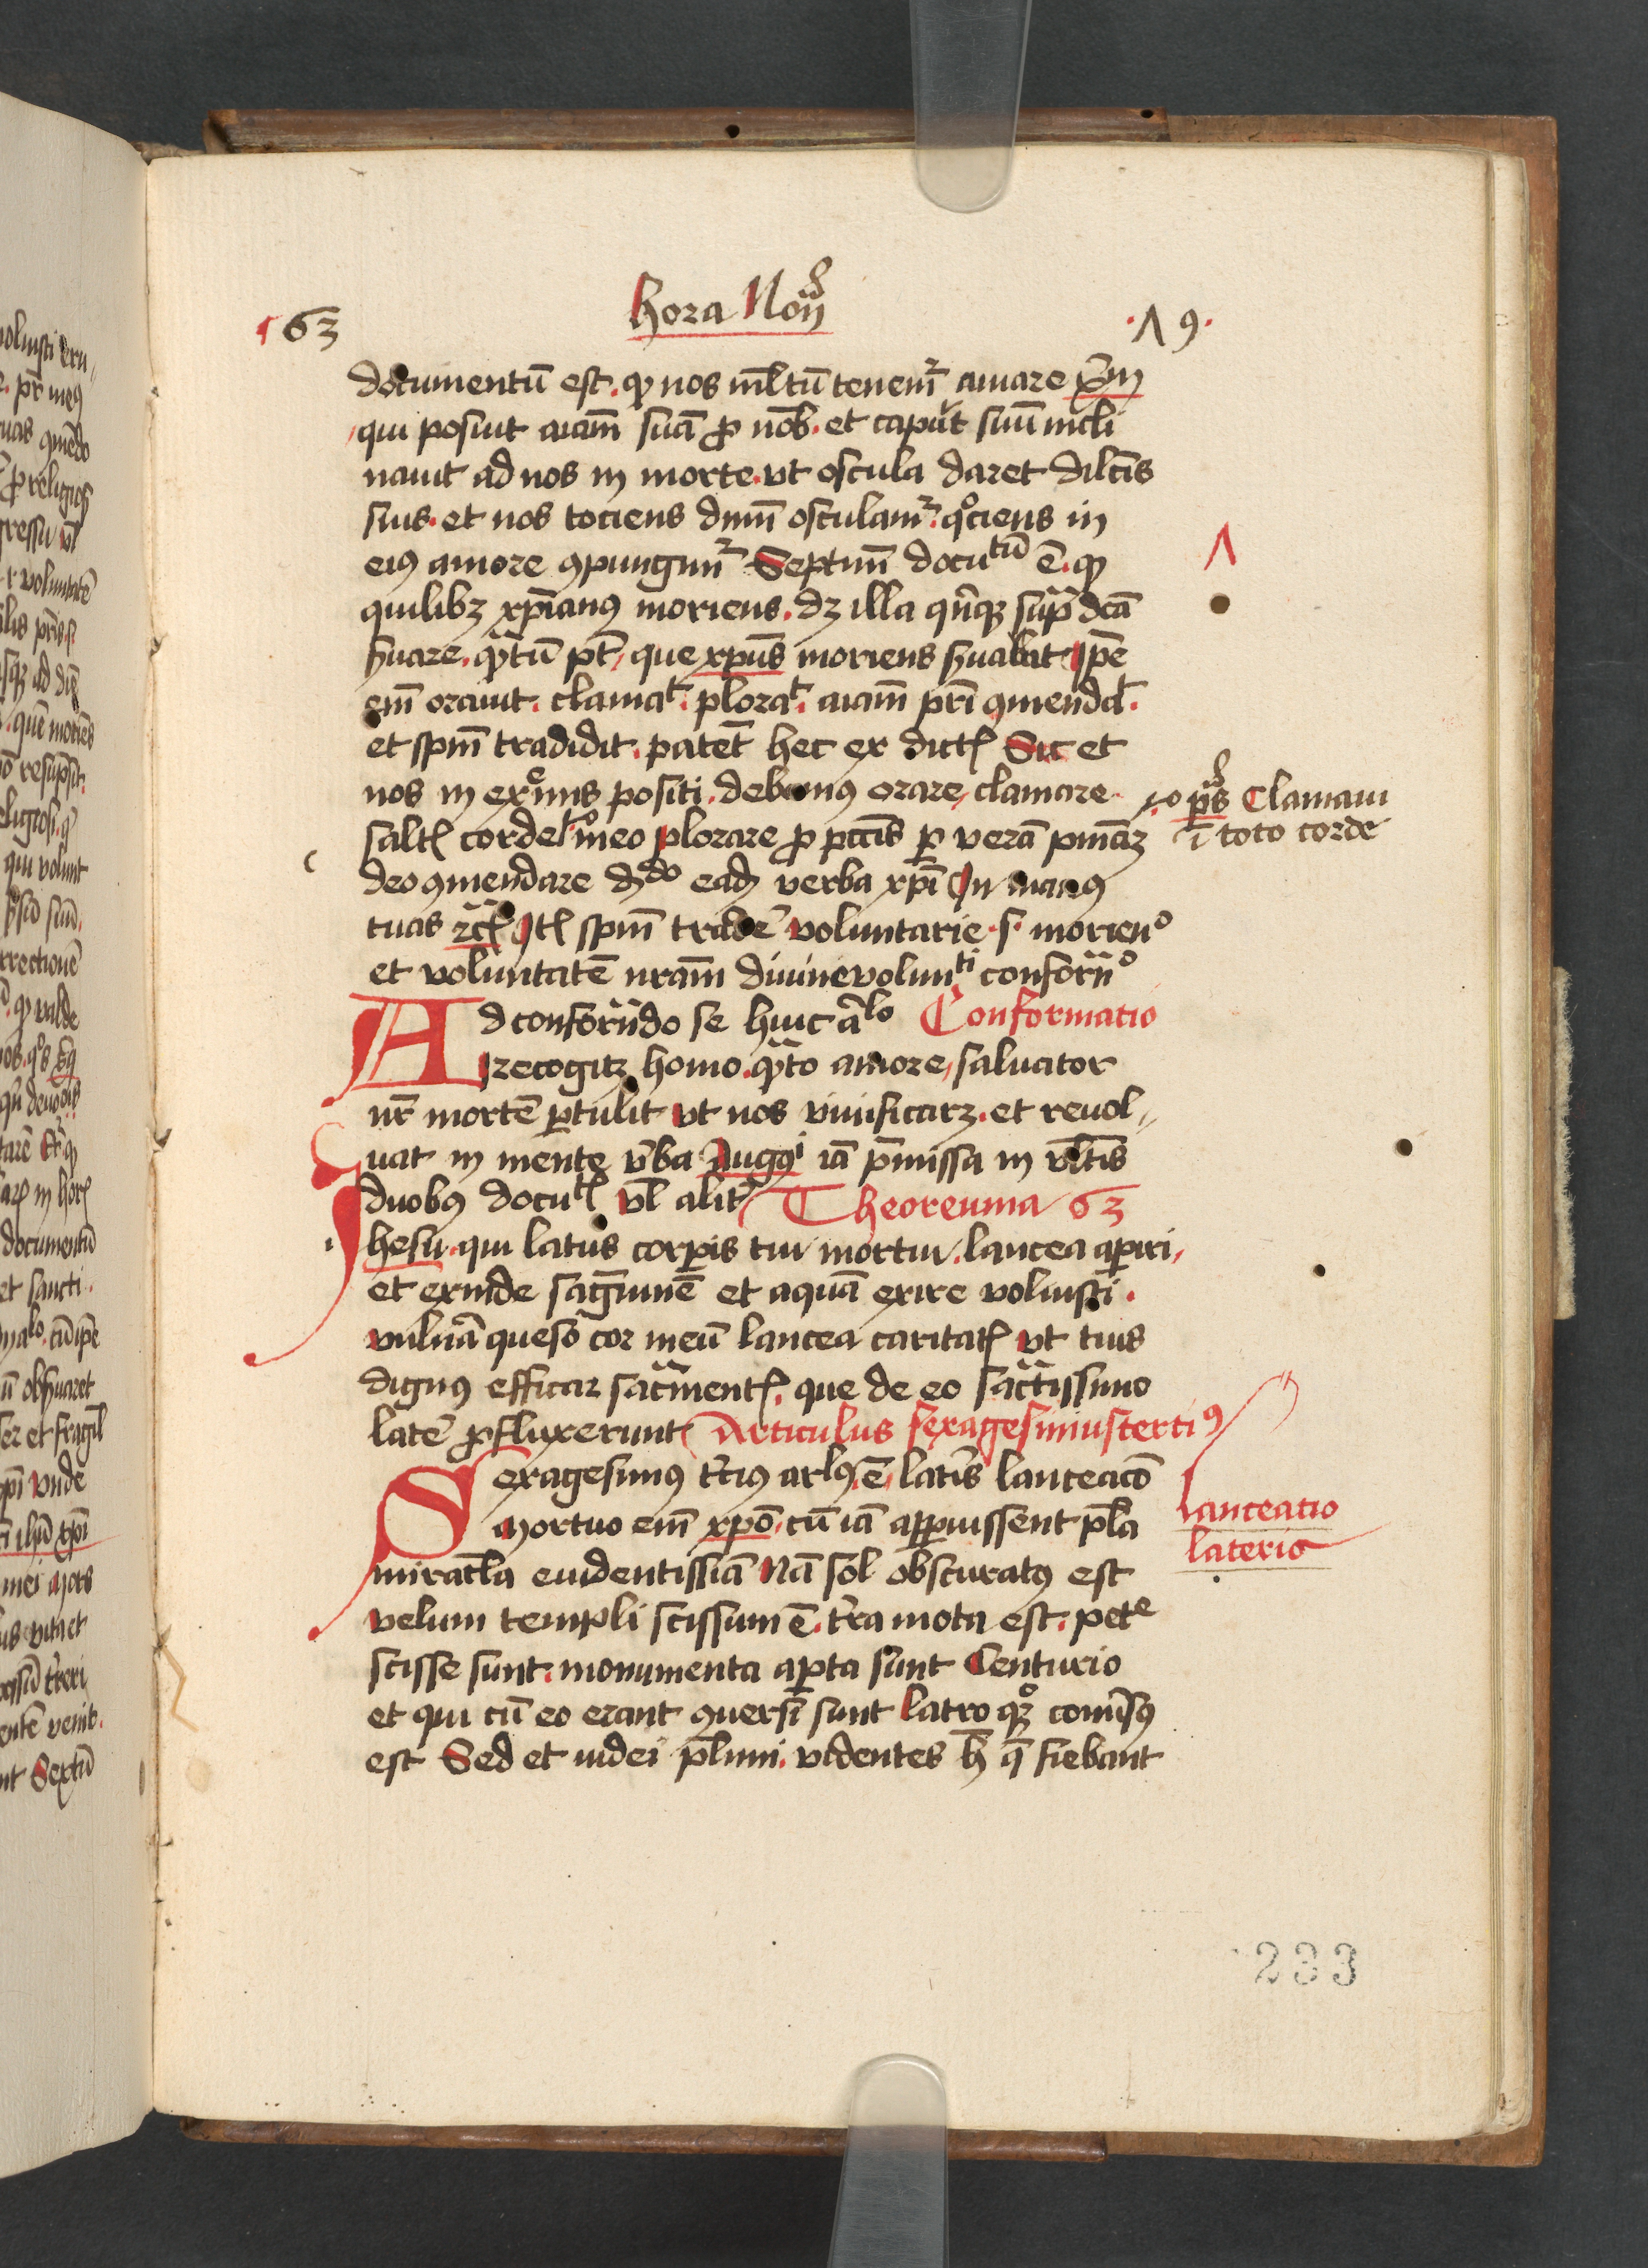 63 hora Noñ .Λ 9.
documentū est. ꝙ nos ml̄tū tenemᷣ amare xp̄m
qui posuit aīam̄ suā ꝓ nob̄. et caput suū incli
nauit ad nos in morte. vt oscula daret dilc̄is
suis. et nos tociens dnm̄ osculamᷣ. qͦciens in
eiꝰ amore ꝯpungimᷣ Septim̄ docutū ē. ꝙ
quilibꝫ xp̄ianꝰ moriens. dꝫ illa qn̄qꝫ sup̄ dc̄a
ẜuare. qᷓtū pt̄, que xpūs moriens ẜuabat Ip̄e
em̄ orauit. clamat. plorat. aīam̄ pr̄i ꝯmendat.
et spm̄ tradidit. patet hec ex dictꝭ Sic et
nos in exͤmis positi. debemꝰ orare, clamare
saltꝭ corde meo plorare ꝓ pctīs ꝑ verā pniāꝫ
deo ꝯmendare dcdo eadꝫ verba xp̄i In manꝰ
tuas ⁊cꝭ Itꝭ spm̄ tradeē voluntarie .s. morienͦ
et voluntatē nram̄ diuine volunti conform̄ͦ
Ad conform̄do se huic aͬlo Conformatio
recogitꝫ homo. qᷓto amore, saluator
nr̄ mortē ꝑtulit vt nos viuificarꝫ. et reuol
uat in mente v̄ba Auggͥ iā p̄missa in vltīs
duobꝰ docutꝭ vl̄ alit̄ Theoreuma 63
Jhesu. qui latus corꝑis tui mortui. lancea aꝑiri,
et exinde sāg̅uinē et aquā exire voluisti.
vulnā queso cor meū lancea caritatꝭ vt tuis
dignꝰ efficiar sacm̄entꝭ. que de eo sāctissimo
latē ꝓfluxerunt Articulus sexagesimus terciꝰ
Sexagesimꝰ t̄ciꝰ arlꝰ ē, lat̄is lanceacō
Mortuo em̄ xp̄o, cū iā apparuissent pl̄a
miracl̄a euidentissīa Nā sol obscuratꝰ est
velum templi scissum ē. t̄ra mota est. pete
scisse sunt. monumenta aꝑta sunt Centurio
et qui cū eo erant ꝯuersi sunt Latro qͦqꝫ conūsꝰ
est Sed et iudei pl̄imi. videntes h̄ q̄ fiebant
p̄s Clamaui
ī toto corde
Lanceatio
lateris
233